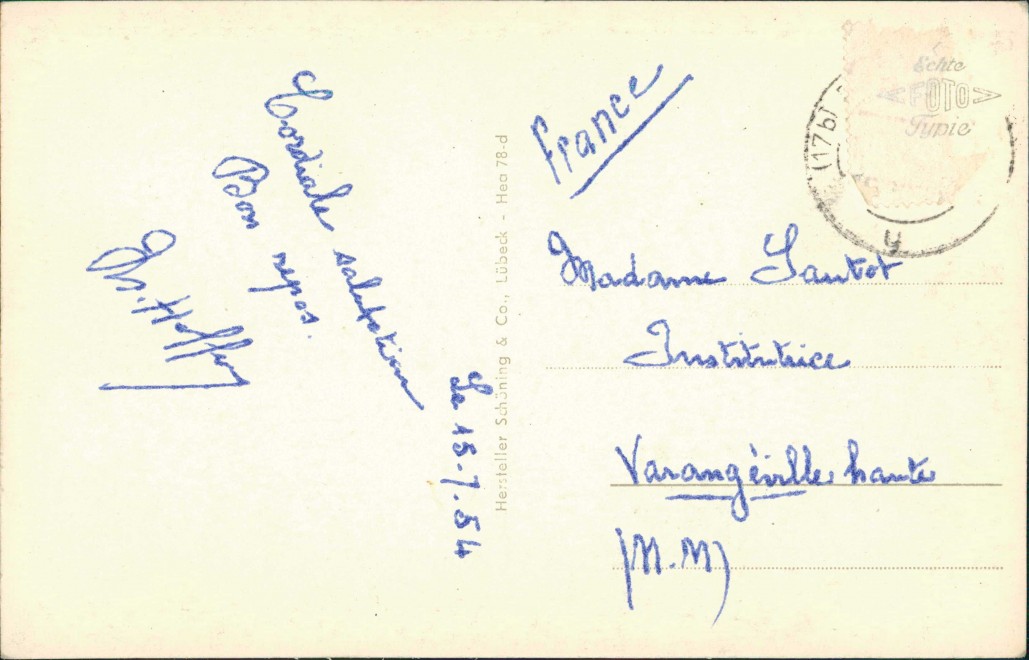 Le 15-7.54
Cordiale salutation
Bon repos.
Hersteller Schöning & Co., Lübeck - Hea 78-d
France
Echte
FOTO
Typie
(17b)
Madame Sautot
Institutrice
Varangéville haute
(M.M)